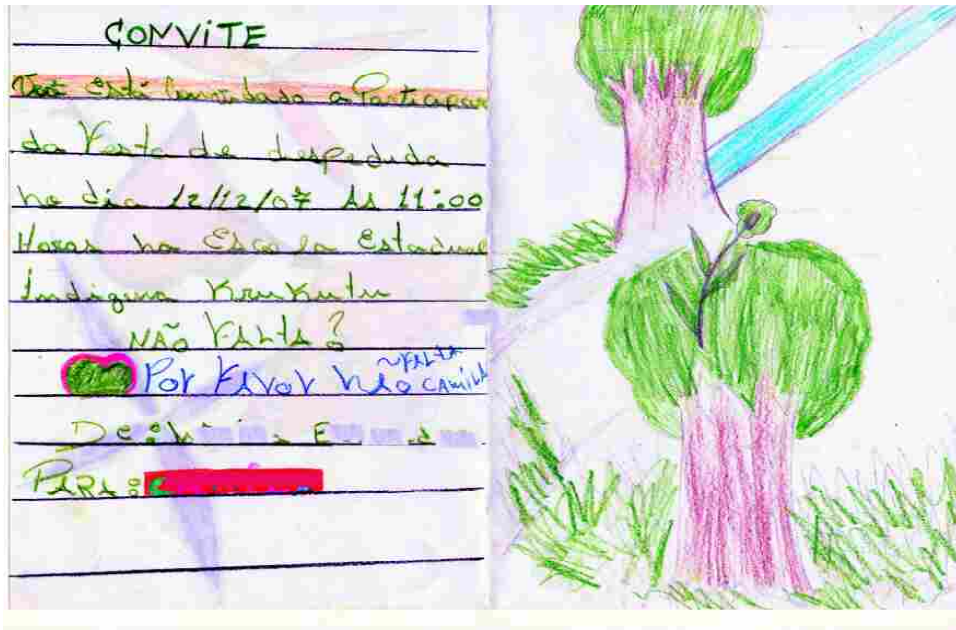 CONVITE
Você Está Convidado a Participar
da Festa de despedida
no dia 12/12/07 As 11:00
Horas na Escola Estadual
Indígena Krukutu
NÃO FALTA?
Por FAVOR NÃO FALTA CAMILA
De:
PARA: